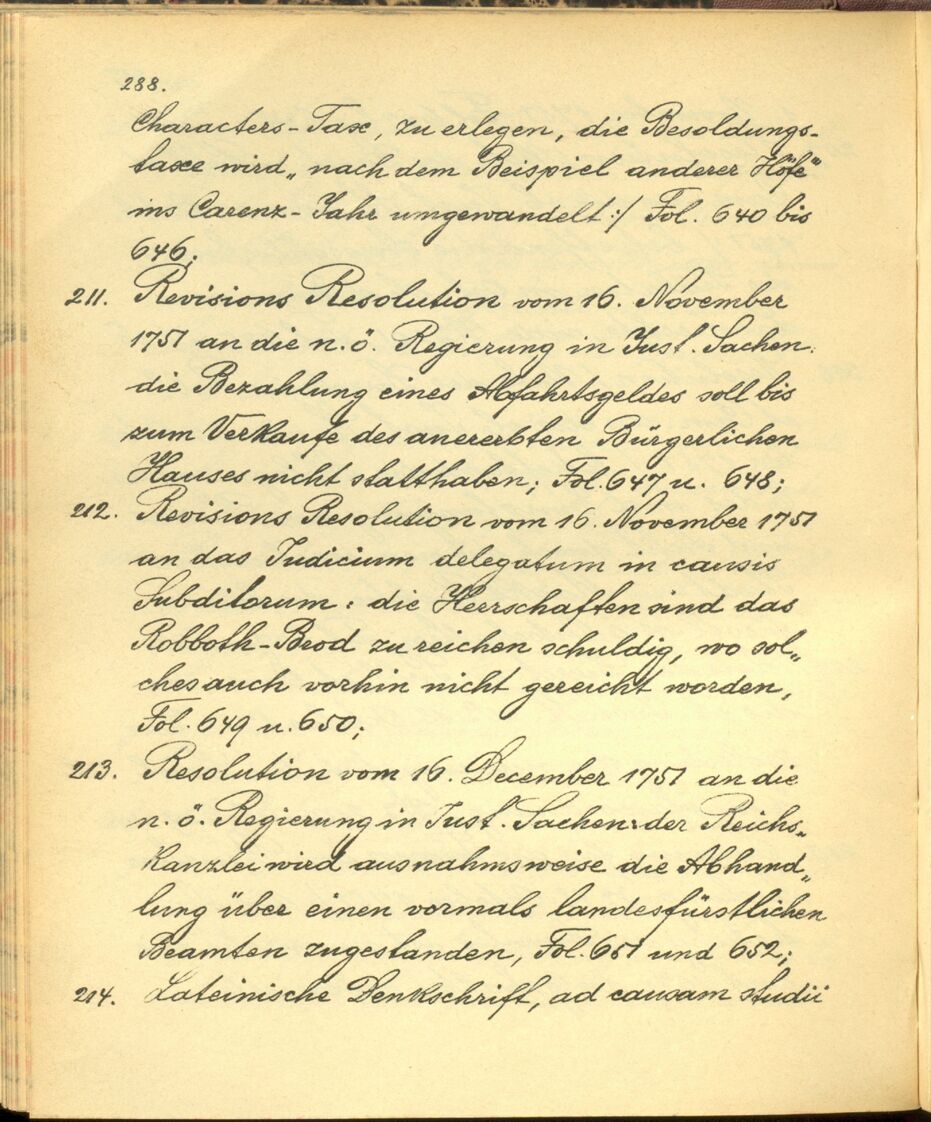 288.
Characters-Taxe, zu erlegen, die Besoldungs-
taxe wird „nach dem Beispiel anderer Höfe"
ins Carenz-Jahr umgewandelt :/ Fol. 640 bis
646;
211. Revisions Resolution vom 16. November
1751 an die n. ö. Regierung in Just. Sachen:
die Bezahlung eines Abfahrtsgeldes soll bis
zum Verkaufe des anererbten Bürgerlichen
Hauses nicht statthaben; Fol. 647 u. 648;
212. Revisions Resolution vom 16. November 1751
an das Judicium delegatum in causis
Subditorum: die Herrschaften sind das
Robboth-Brod zu reichen schuldig, wo sol„
ches auch vorhin nicht gereicht worden,
Fol. 649 u. 650;
213. Resolution vom 16. December 1751 an die
n. ö. Regierung in Just. Sachen: der Reichs„
Kanzlei wird ausnahmsweise die Abhand„
lung über einen vormals landesfürstlichen
Beamten zugestanden, Fol. 651 und 652;
214. Lateinische Denkschrift, ad causam studii